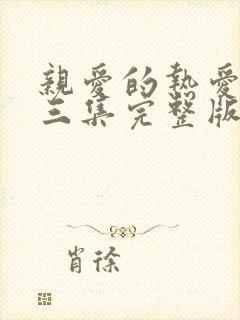 親愛的熱愛
三集完整版
肖徐